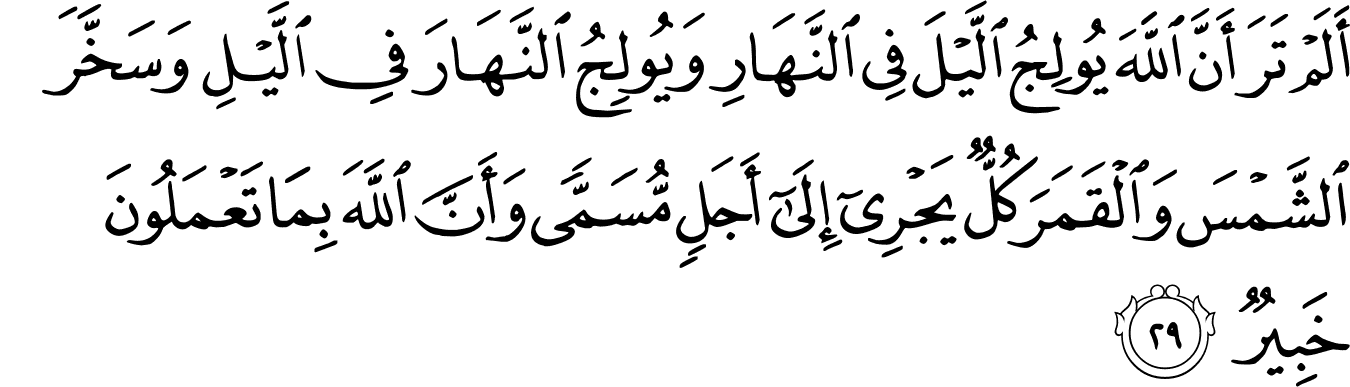 أَلَمْ تَرَ أَنَّ ٱللَّهَ يُولِجُ ٱلَّيْلَ فِى ٱلنَّهَارِ وَيُولِجُ ٱلنَّهَارَ فِى ٱلَّيْلِ وَسَخَّرَ
ٱلشَّمْسَ وَٱلْقَمَرَ كُلٌّ يَجْرِىٓ إِلَىٰٓ أَجَلٍ مُّسَمًّى وَأَنَّ ٱللَّهَ بِمَا تَعْمَلُونَ
خَبِيرٌ ٢٩